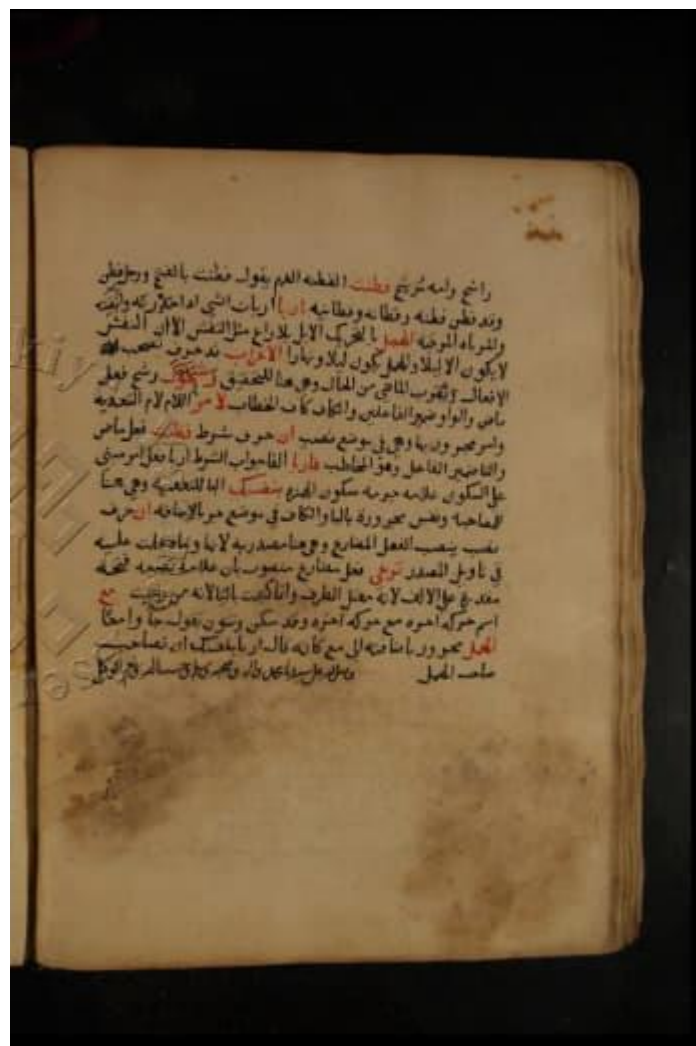 راشح وامه ترشح فطنت الفطنة الفهم يقول فطنت بالفتح ورجل فطن
وقد فطن فطنة وفطانة وفطانية اربا اربات الشي اذا
والمرباه المرقبة الهمل بالتحريك الابل بلا راع مثل النفش الا ان النفش
لا يكون الا ليلا والهمل يكون ليلا ونهارا الاعراب قد حرف تصحب
الافعال وتقرب الماضي من الحال وهي هنا للتحقيق رشح فعل
ماض والواو ضمير الفاعلين والكاف كاف الخطاب لامر اللام لام التعدية
وامر مجرور بها وهي في موضع نصب ان حرف شرط فطنت فعل ماض
والتا ضمير الفاعل وهو المخاطب فاربا الفا جواب الشرط اربا فعل امر مبني
على السكون علامة جزمه سكون الهمزة بنفسك البا للتعدية وهي هنا
للمصاحبة ونفس مجرورة بالبا والكاف في موضع جر بالاضافة ان حرف
نصب ينصب الفعل المضارع وهي هنا مصدرية لانها وما دخلت عليه
في تاويل المصدر ترعى فعل مضارع منصوب بان علامة نصبه فتحة
مقدرة على الالف لانه معتل الطرف وانما كتبت باليا لانه من رعيت مع
اسم حركة اخره مع حركة اخره وقد سكن وينون يقول جاوا معا
الهمل مجرور باضافته الى مع كانه قال اربا بنفسك ان تصاحب
صاحب الهمل وصلى الله على سيدنا محمد واله وصحبه